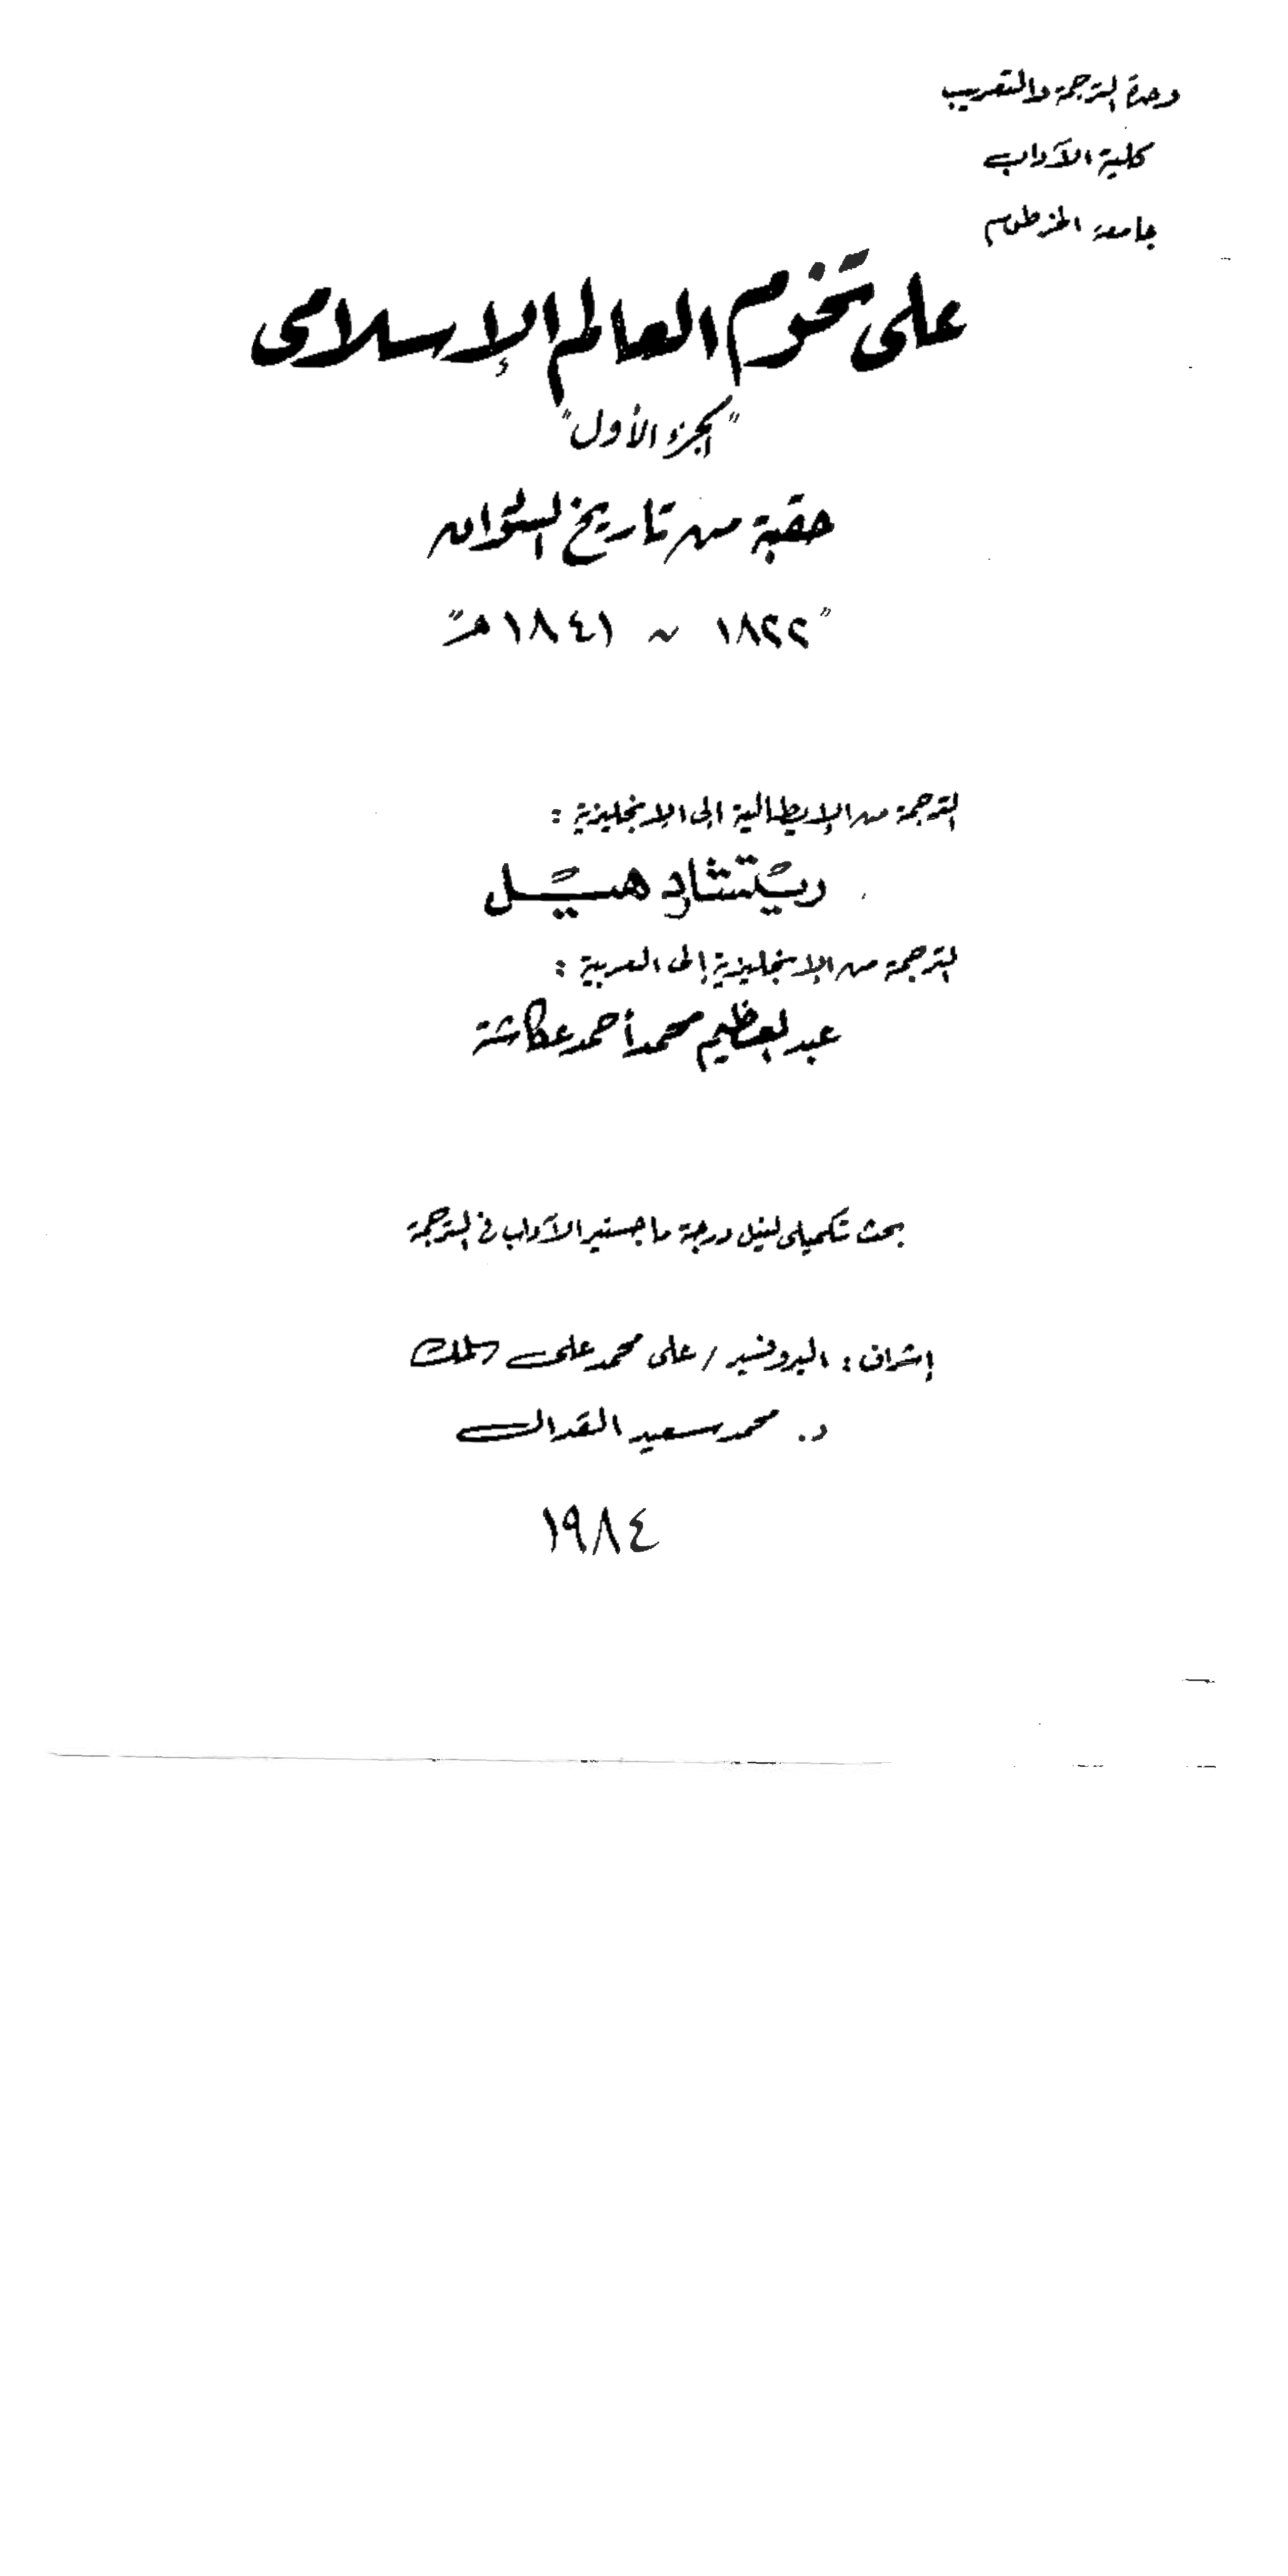 وحدة الترجمة والتعريب
كلية الآداب
جامعة الخرطوم
على تخوم العالم الإسلامى
"الجزء الأول"
حقبة من تاريخ السودان
"١٨٢٢ ~ ١٨٤١م"
الترجمة من الإيطالية الى الإنجليزية :
ريتشارد هيل
الترجمة من الإنجليزية إلى العربية :
عبد العظيم محمد أحمد عكاشة
بحث تكميلى لنيل درجة ماجستير الآداب فى الترجمة
إشراف : البروفسير / على محمد على الملك
د. محمد سعيد القدال
١٩٨٤